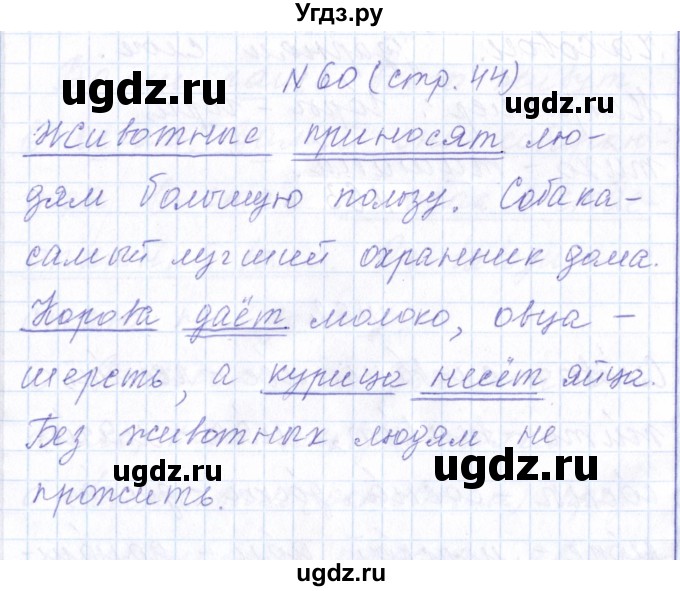 Угдз.ру
ugdz.ru
N 60 (стр. 44)
Животные приносят лю-
ugdz.ru
дям большую пользу. Собака -
самый лучший охранник дома.
Корова даёт молоко, овца -
ugdz.ru
ugdz.ru
шерсть, а курица несёт яйца.
Без животных людям не
ugdz.ru
ugdz.ru
прожить.
ugdz.ru